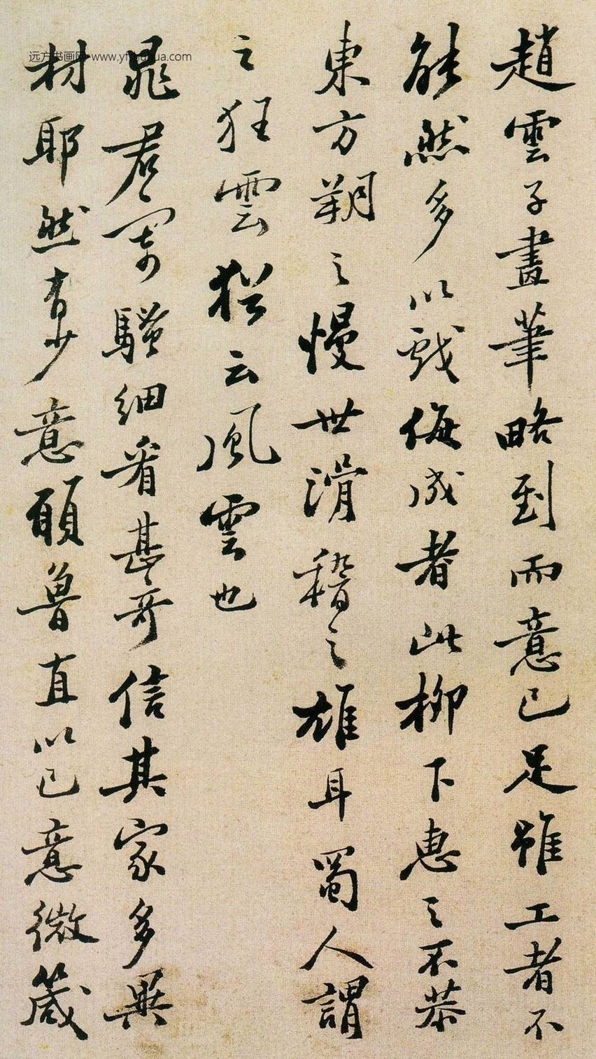 趙雲子畫筆略到而意已足雖工者不
能然多以戲侮成者此柳下惠之不恭
東方朔之慢世滑稽之雄耳蜀人謂
之狂雲猶云風雲也
晁君寄騷細看甚奇信其家多異
材耶然有少意願魯直以己意微箴
远方书画网 www.yf
ua.com